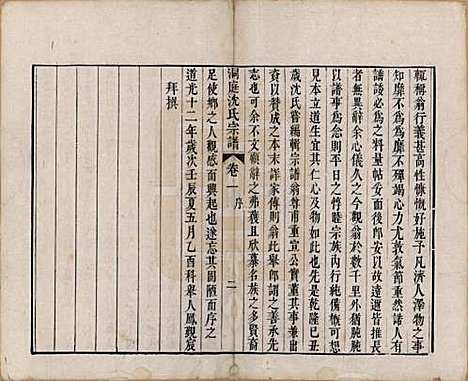 輒稱翁行義甚高性慷慨好施予凡濟人澤物之事
知靡不為為靡不殫竭心力尤敦氣節重然諾人有
諉諉必為之料量帖妥而後郎安以故遠邇皆推長
者無異辭余心儀久之今觀翁於數千里外猶腕腕
以譜事為念則平日之惇睦宗族內行純備慨可想
見本立道生宜其仁心及物如此也先是乾隆己丑
歲沈氏嘗編輯宗譜翁尊甫重宣公實董其事兼出
資以贊成之本末詳家傳則翁此舉郎謂之善承先
志可也余不文顧辭之弗獲且欣慕名族之多賢裔
洞庭沈氏宗譜 卷一 序 二
足使鄉之人觀感而興起也遂忘其固陋而序之
道光十二年歲次壬辰夏五月乙酉科舉人鳳宸
拜撰